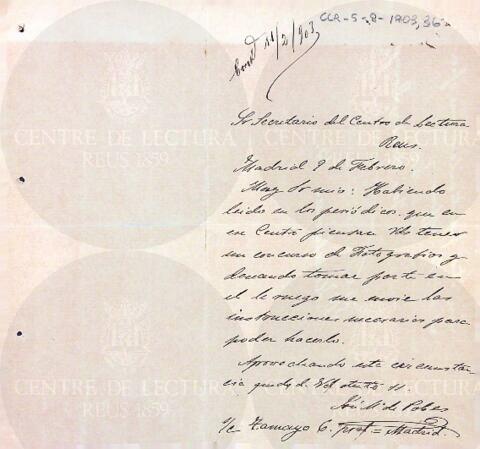 CCR-5-2-1903,36
Contd 11/2/903
Sr Secretario del Centro de Lectura
Reus.
Madrid 9 de Febrero.
Muy Sr mio: Habiendo
leido en los periódicos que en
en Centro piensan Vds tener
un concurso de Fotografias y
deseando tomar parte en
el le ruego me envie las
instrucciones necesarias para
poder hacerlo.
Aprovechando esta circunstan
cia queda de Vd atento
José M. de Pobes
s/c Tamayo 6. = Madrid.
CENTRE DE LECTURA
REUS 1859
CENTRE DE LECTURA
REUS 1859
CENTRE DE LECTURA
REUS 1859
CENTRE DE LECTURA
REUS 1859